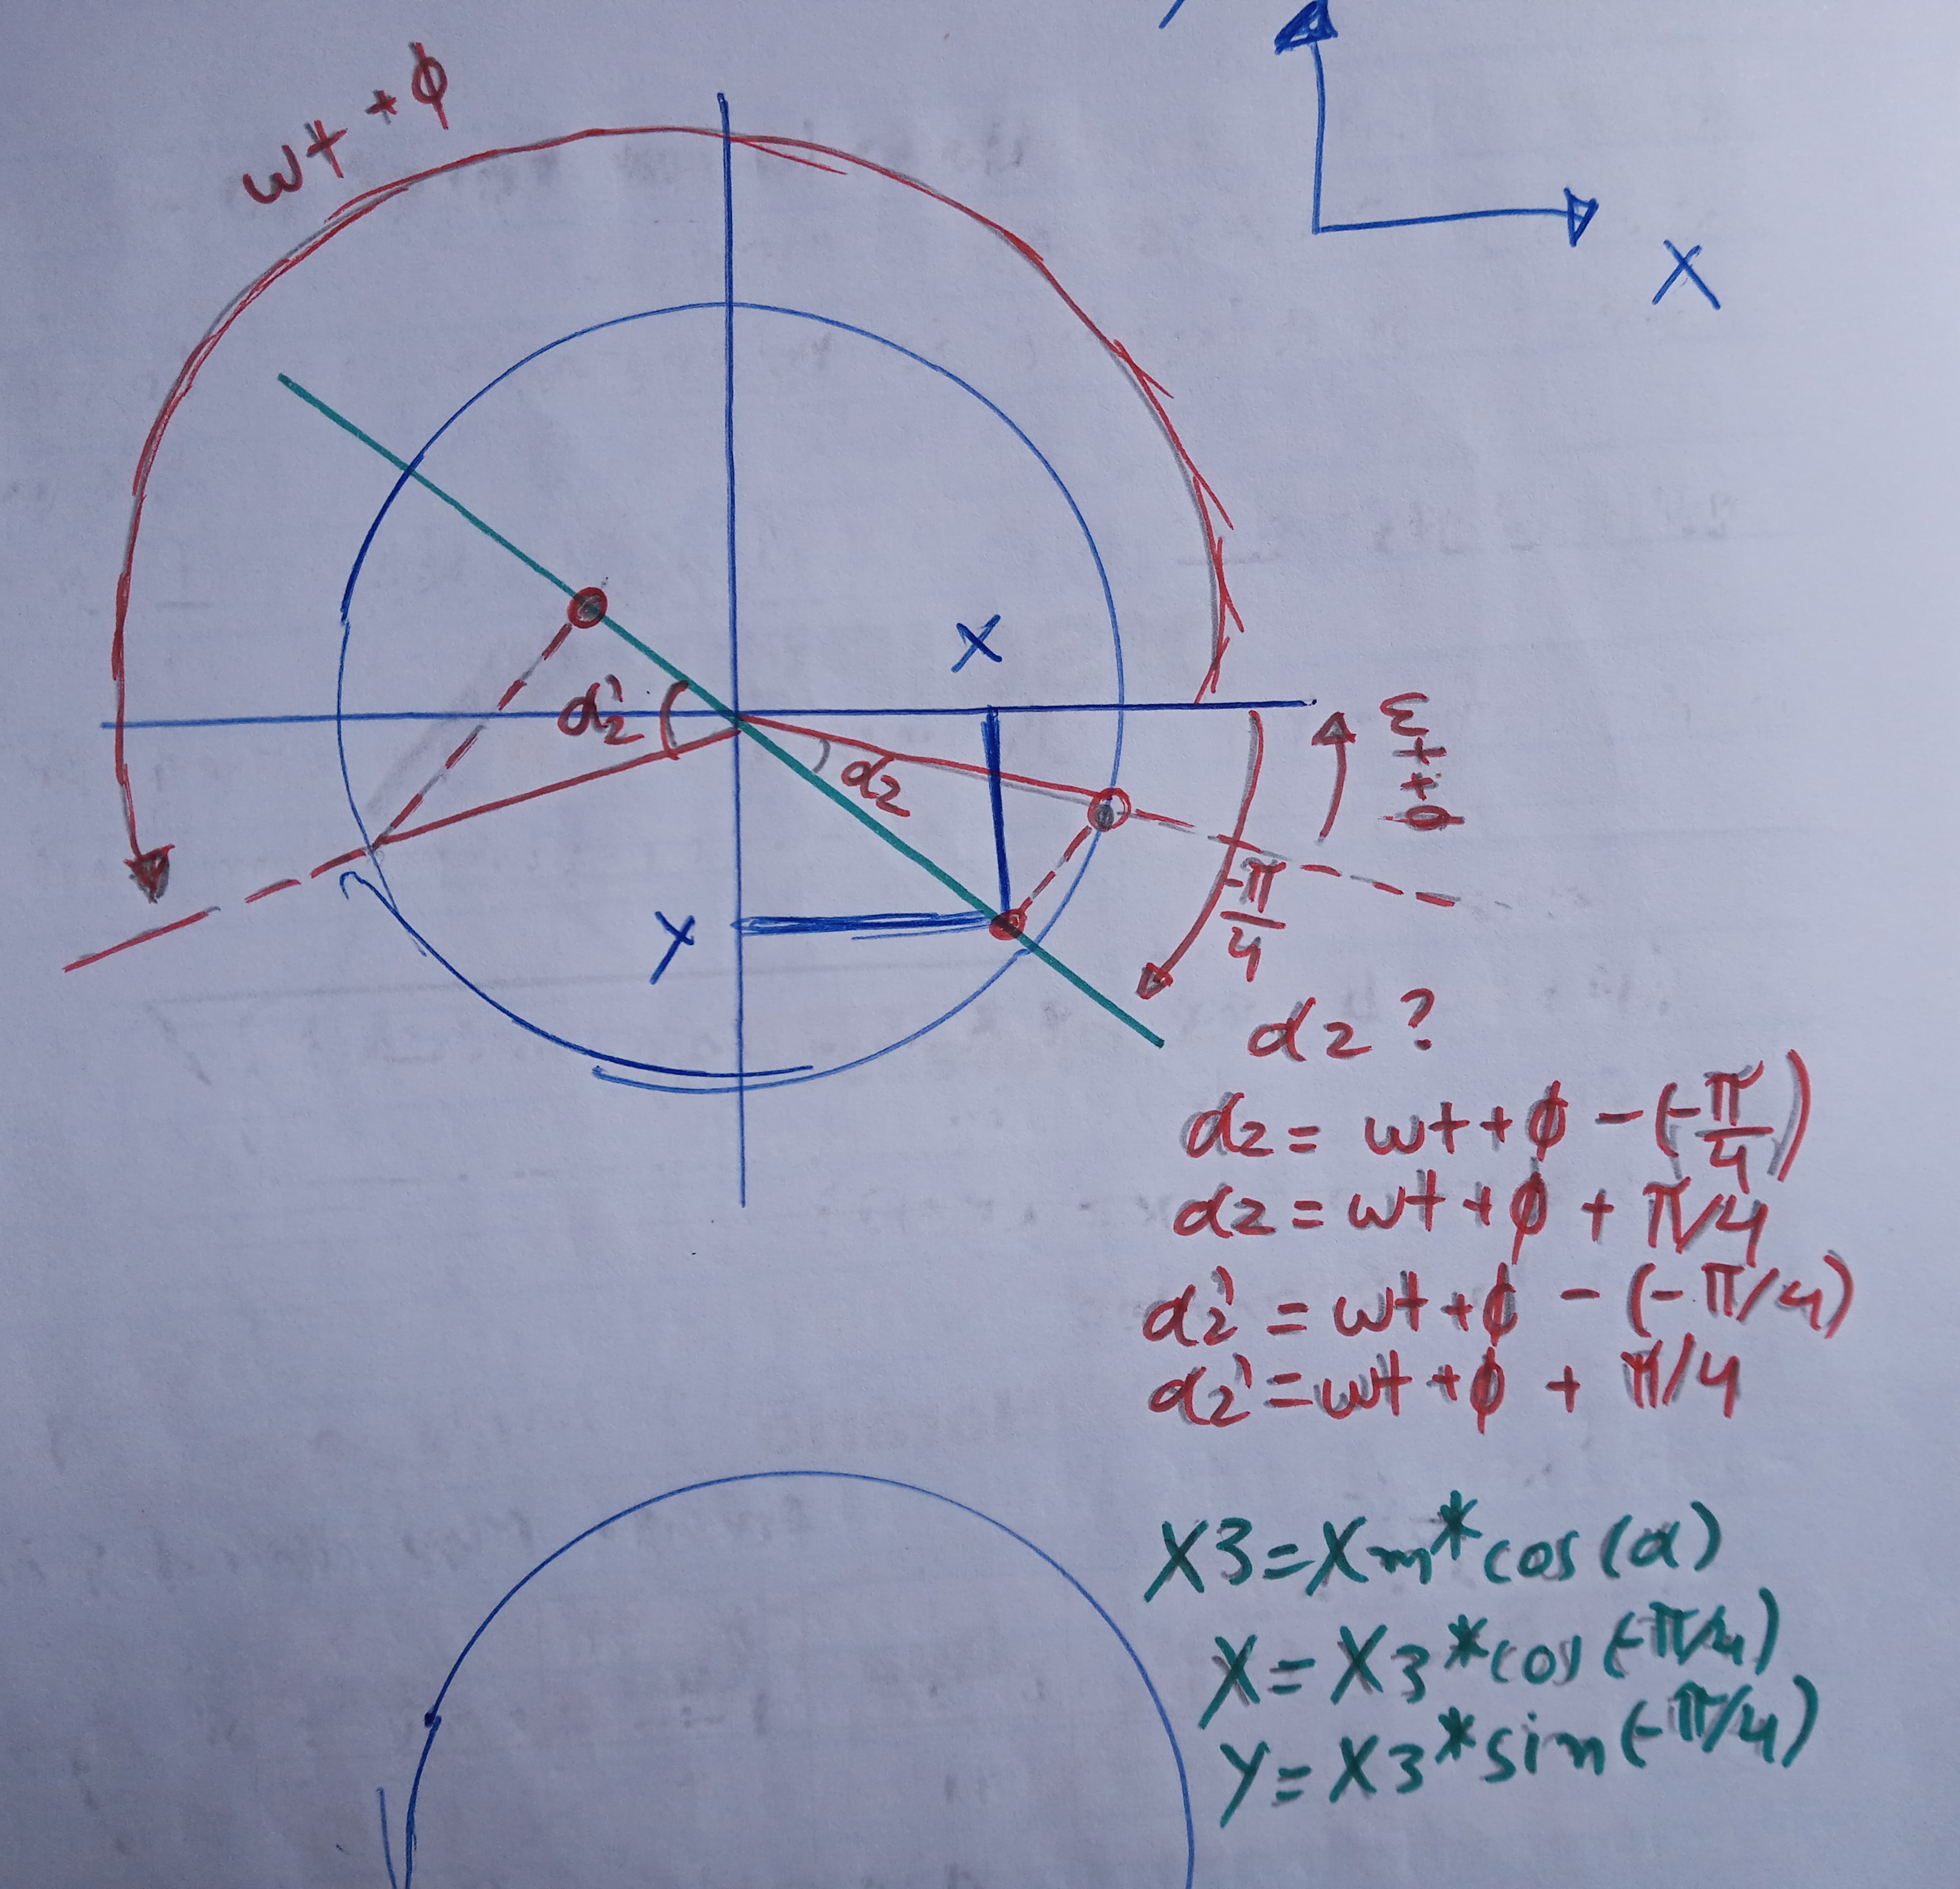 wt + ϕ
X
X
wt + ϕ
α2'
α2
-π/4
Y
α2 ?
α2 = wt + ϕ - (-π/4)
α2 = wt + ϕ + π/4
α2' = wt + ϕ - (-π/4)
α2' = wt + ϕ + π/4
X3 = Xm * cos(α)
X = X3 * cos(-π/4)
Y = X3 * sin(-π/4)